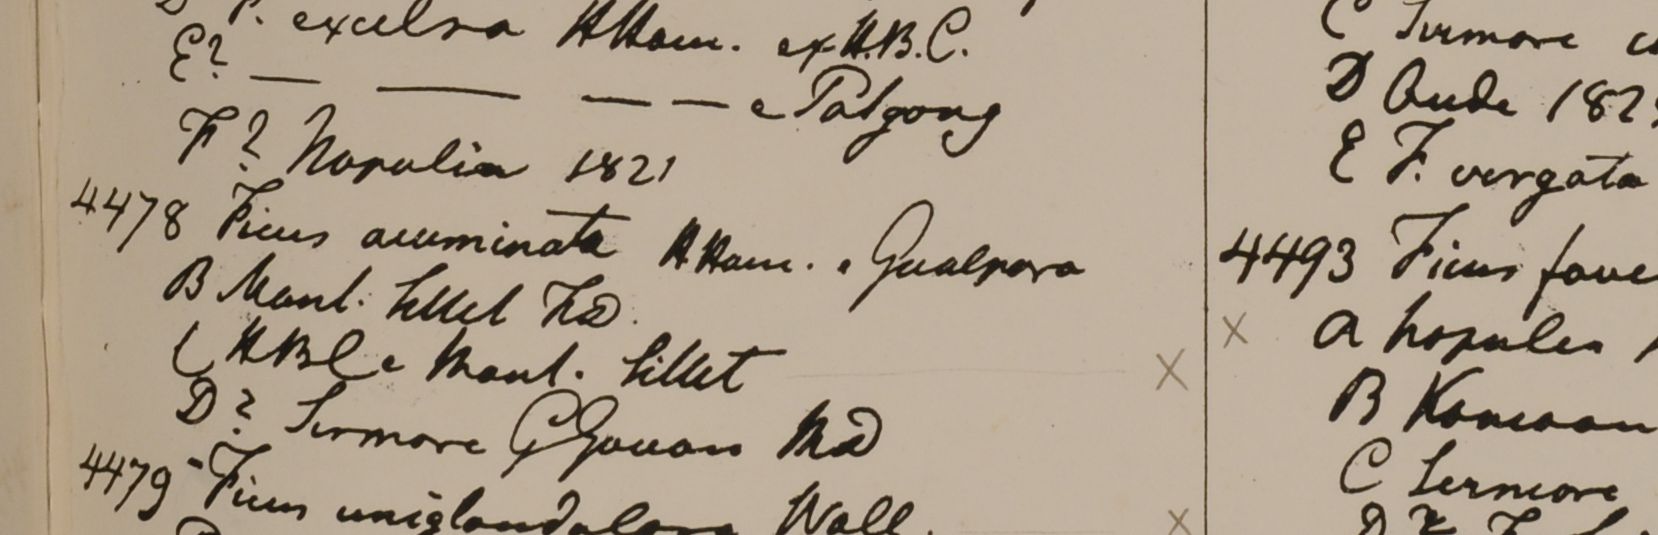 P. excelsa HHam. ex H.B.C.
E? — — — — e Palgong
F? Napalia 1821
4478 Ficus acuminata HHam. e Gualpara
B Mont. Sillet FD.
C HBC e Mont. Sillet
D? Sirmore GGovan MD
4479 Ficus uniglandulosa Wall.
C Sirmore
D Oude 182
E F. virgata
4493 Ficus fove
a Napalia
B Kamaon
C Sirmore